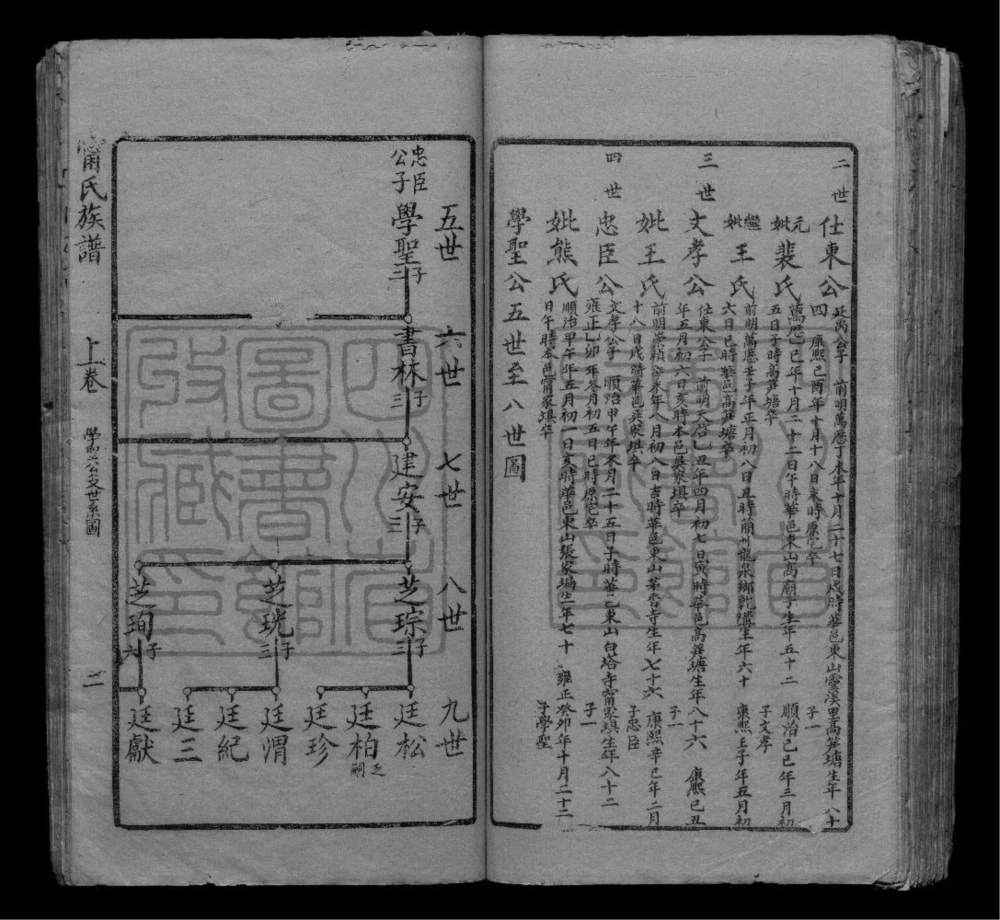 二世
仕東公
廷尚公子 前明萬曆丁未年十月二十七日戌時華邑東山靈溪里高筍塘生年八十
四 康熙己酉年十月十八日未時原宅卒 子一
元妣裴氏
萬曆己年十月二十二日午時華邑東山高廟子生年五十二 順治己巳年三月初
五日子時高筍塘卒
繼妣王氏
前明萬曆壬子年正月初八日丑時簡州龍泉鄉乾溝生年六十 康熙壬子年五月初
六日巳時華邑高筍塘卒 子文孝
三世
文孝公
仕東公子 前明天啓乙丑年四月初七日寅時華邑高筍塘生年八十六 康熙己丑
年五月初六日亥時本邑吳家填卒 子一
妣王氏
前明崇禎 未年八月初八日吉時華邑東山華香寺生年七十六 康熙辛巳年二月
十八日戌時華邑吳家填卒 子忠臣
四世
忠臣公
文孝公子 順治甲午年冬月二十五日子時華邑東山白塔寺甯家填生年八十二
雍正乙卯年冬月初五日巳時原宅卒 子一
妣熊氏
順治甲午年五月初一日亥時華邑東山張家塥生年七十 雍正癸卯年十月二十二
日午時本邑甯家填卒 子學聖
學聖公五世至八世圖
五世
六世
七世
八世
九世
忠臣公子
學聖 子二
書林 子三
建安 子三
芝琮 子三
芝珖 子三
芝珣 子六
廷松
廷柏 乏嗣
廷珍
廷渭
廷紀
廷三
廷獻
甯氏族譜
上卷
學聖公支世系圖
二
四川省圖書館收藏印